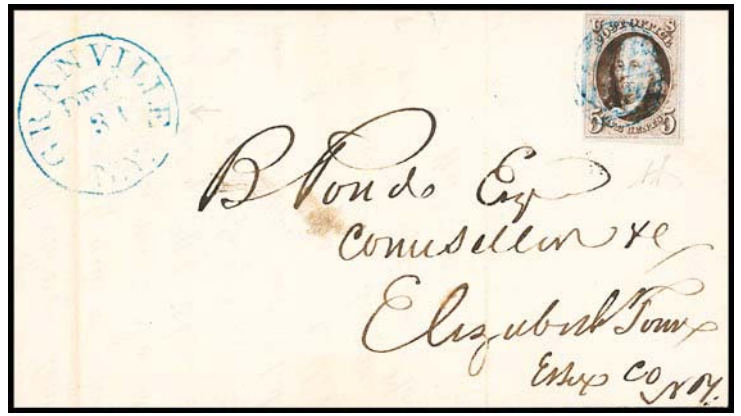 GRANVILLE
DEC
31
N.Y.
POST OFFICE
5 5
B Pond Esq
Counsellor &c
Elizabeth Town
Essex Co N.Y.